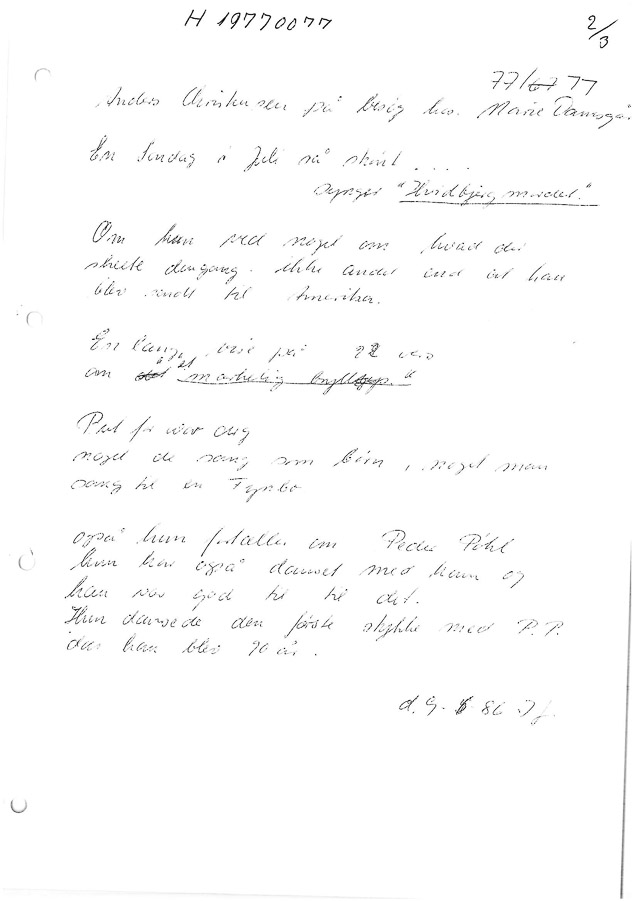 H 19770077
2/3
77/67 77
Anders Christensen på besøg hos. Marie Damsgå.
En Søndag i Juli så skønt ....
synger "Hvidbjerg mordet."
Om hun ved noget om, hvad der
skete dengang. ikke andet end at han
blev sendt til Amerika.
En lang vise på 22 vers
om det "et mærkelig bryllup."
noget de sang som børn, noget man
sang til en Fynbo
også hun fortæller om Peder Pihl
hun har også danset med ham og
han var god til til det.
Hun dansede den første stykke med P.P.
da han blev 90 år.
d. 9. 86